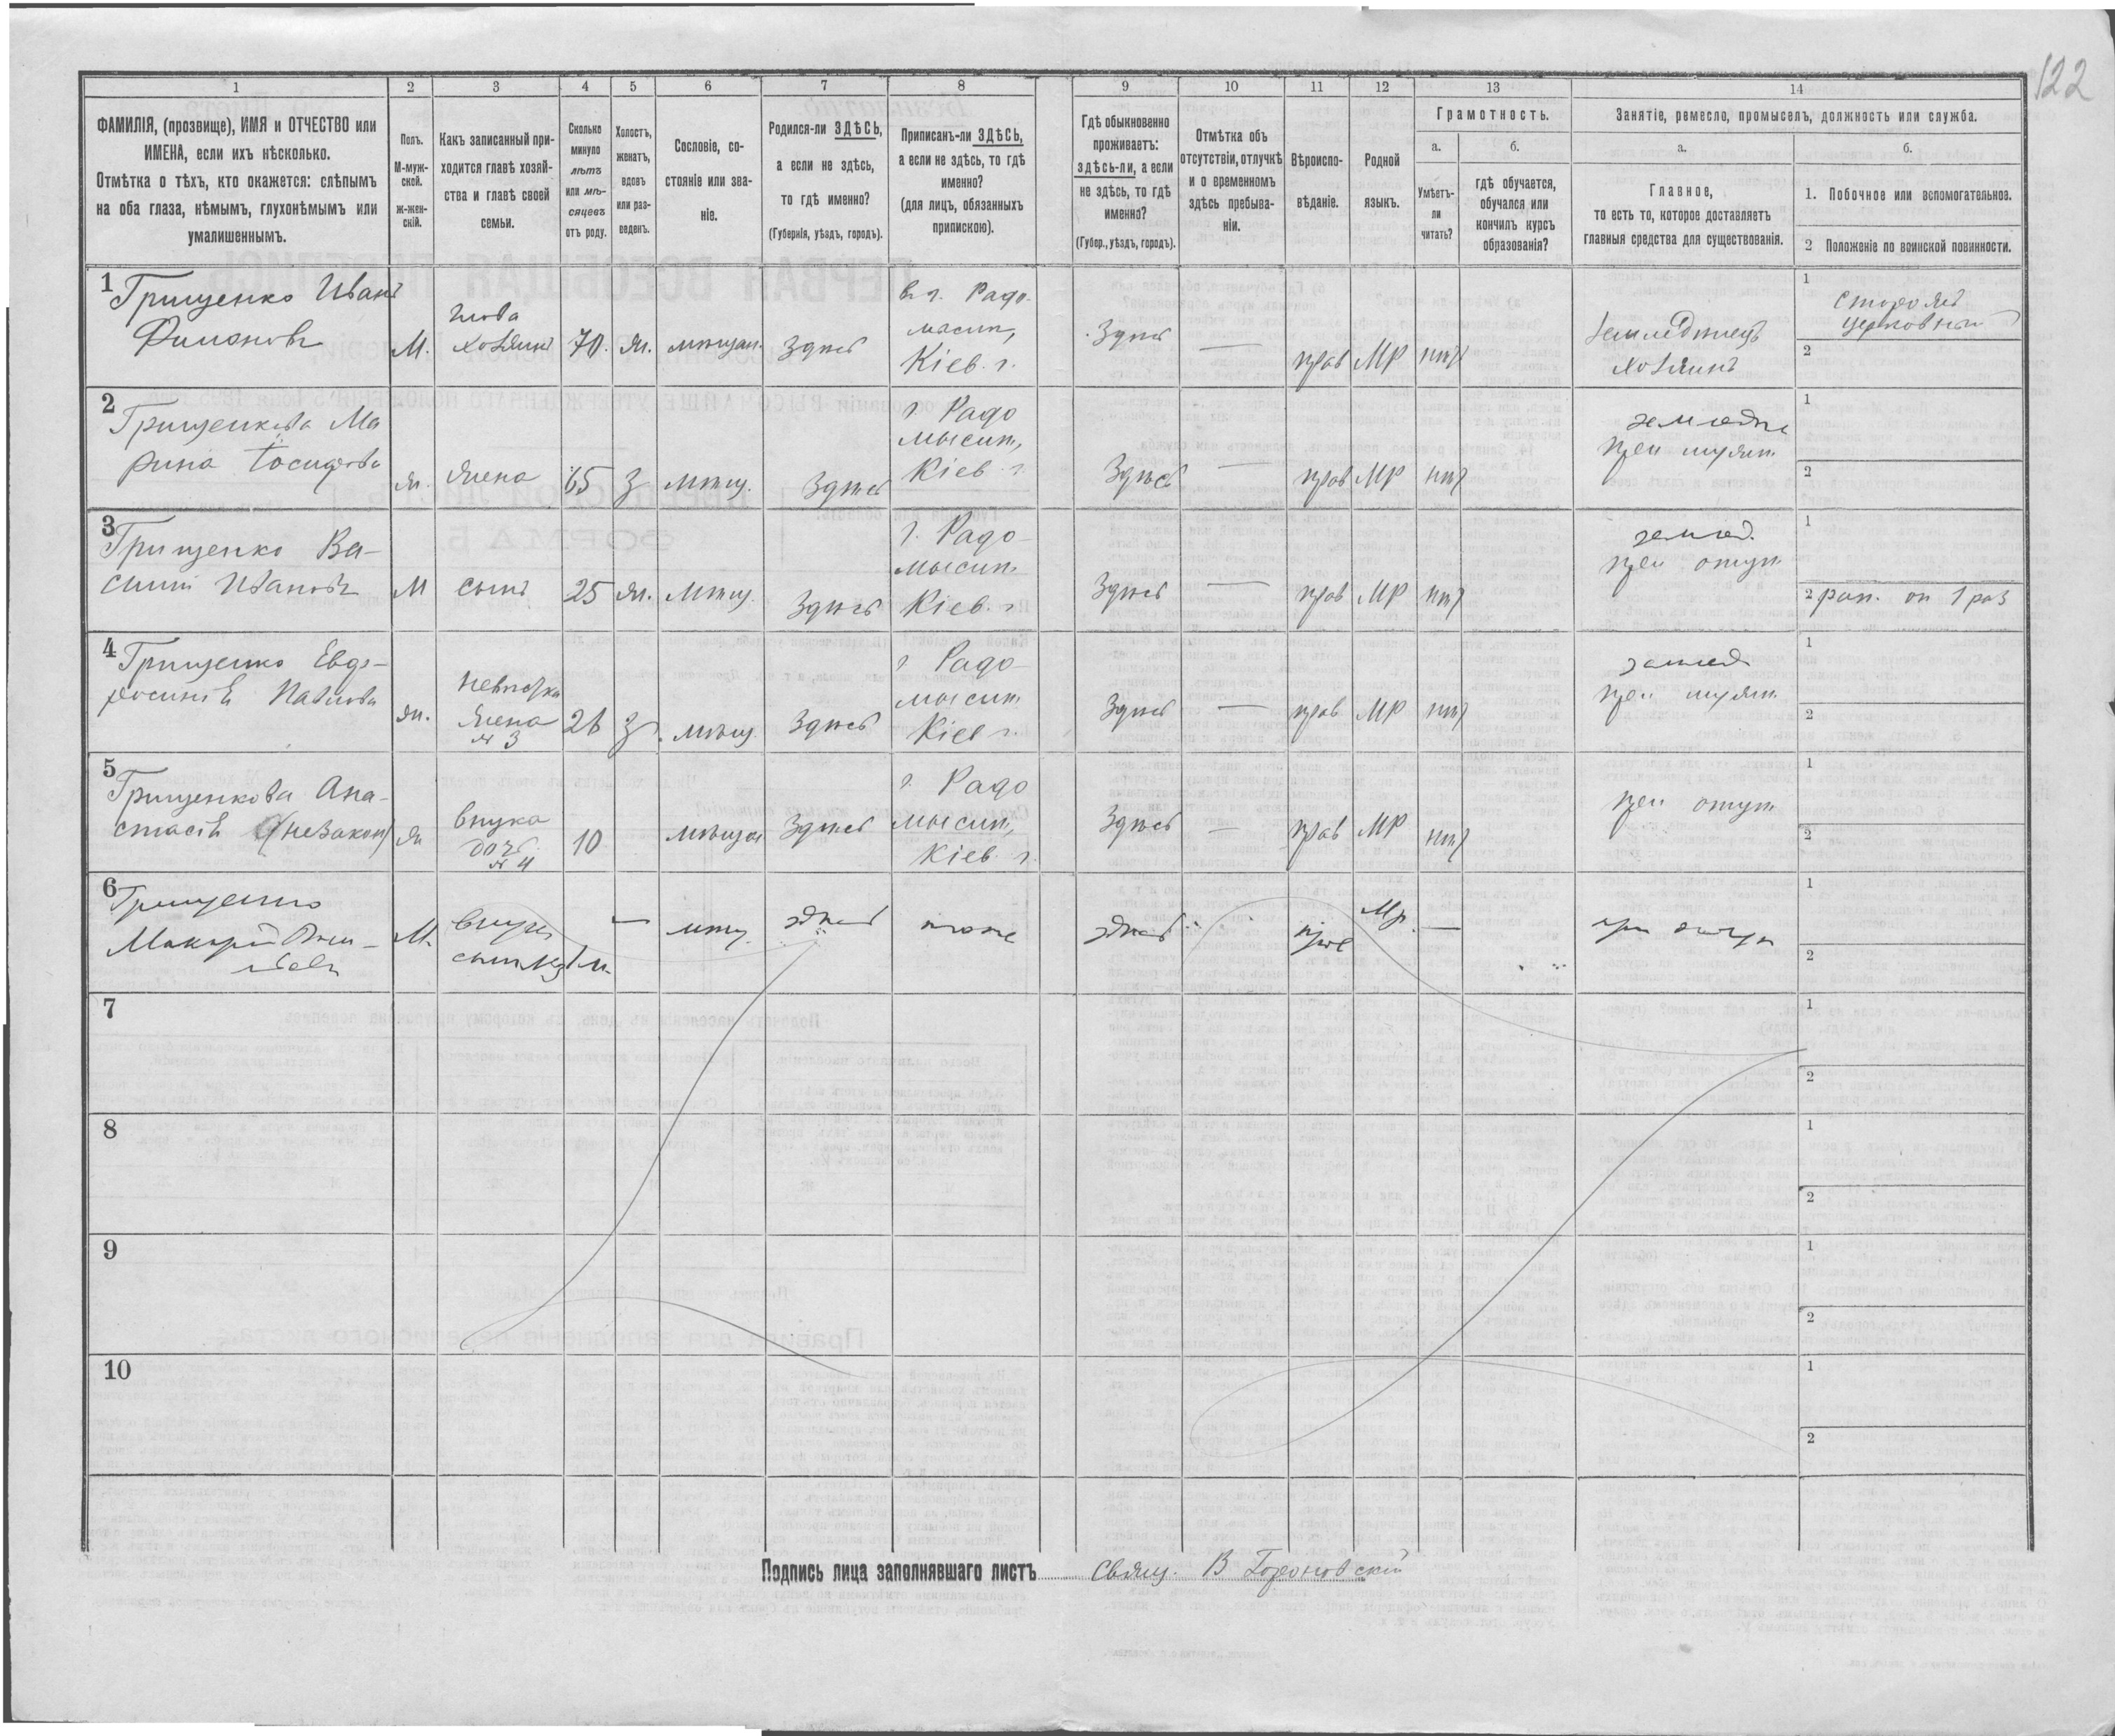 122
1 2 3 4 5 6 7 8 9 10 11 12 13 14
ФАМИЛІЯ, (прозвище), ИМЯ и ОТЧЕСТВО или
ИМЕНА, если ихъ нѣсколько.
Отмѣтка о тѣхъ, кто окажется: слѣпымъ
на оба глаза, нѣмымъ, глухонѣмымъ или
умалишеннымъ.
Полъ.
М-муж-
ской.
ж-жен-
скій.
Какъ записанный при-
ходится главѣ хозяй-
ства и главѣ своей
семьи.
Сколько
минуло
лѣтъ
или мѣ-
сяцевъ
отъ роду.
Холостъ,
женатъ,
вдовъ
или раз-
веденъ.
Сословіе, со-
стояніе или зва-
ніе.
Родился-ли ЗДѢСЬ,
а если не здѣсь,
то гдѣ именно?
(Губернія, уѣздъ, городъ).
Приписанъ-ли ЗДѢСЬ,
а если не здѣсь, то гдѣ
именно?
(для лицъ, обязанныхъ
припискою).
Гдѣ обыкновенно
проживаетъ:
здѣсь-ли, а если
не здѣсь, то гдѣ
именно?
(Губер., уѣздъ, городъ).
Отмѣтка объ
отсутствіи, отлучкѣ
и о временномъ
здѣсь пребыва-
ніи.
Вѣроиспо-
вѣданіе.
Родной
языкъ.
Грамотность.
а.
Умѣетъ-
ли
читать?
б.
гдѣ обучается,
обучался или
кончилъ курсъ
образованія?
Занятіе, ремесло, промыселъ, должность или служба.
а.
Главное,
то есть то, которое доставляетъ
главныя средства для существованія.
б.
1. Побочное или вспомогательное.
2 Положеніе по воинской повинности.
1
Грищенко Иванъ
Филоновъ
М.
глава
хозяинъ
70.
ж.
мѣщан.
Здѣсь
в г. Радо-
мыслѣ,
Кіев. г.
Здѣсь
—
прав
МР
нѣтъ
Земледѣлецъ
хозяинъ
1
сторожъ
церковный
2
2
Грищенкова Ма
рина Іосифова
ж.
жена
65
З
мѣщ.
Здѣсь
г. Радо
мыслѣ,
Кіев. г.
Здѣсь
—
прав
МР
нѣтъ
земледѣл
при мужѣ
1
2
3
Грищенко Ва-
силій Ивановъ
М
сынъ
25
ж.
мѣщ.
Здѣсь
г. Радо-
мыслѣ
Кіев. г.
Здѣсь
—
прав
МР
нѣтъ
землед.
при отцѣ
1
2 рат. оп 1 раз
4
Грищенко Евдо-
Павлова
ж.
невѣстка
жена
№ 3
26
З
мѣщ.
Здѣсь
г. Радо-
мыслѣ
Кіев г.
Здѣсь
—
прав
МР
нѣтъ
землед
при мужѣ
1
2
5
Грищенкова Ана-
стасія (незакон)
ж
внука
дочь
№ 4
10
мѣщан
Здѣсь
г. Радо
мыслѣ,
Кіев. г.
Здѣсь
—
прав
МР
нѣтъ
при отцѣ
1
2
6
Грищенко
Макарій Васи-
льевъ
М.
внукъ
сынъ №3
1 м.
—
мѣщ.
здѣсь
тоже
здѣсь
прав
Мр.
—
при отцѣ
1
2
7
1
2
8
1
2
9
1
2
10
1
2
Подпись лица заполнявшаго листъ Свящ. В Гороновскій